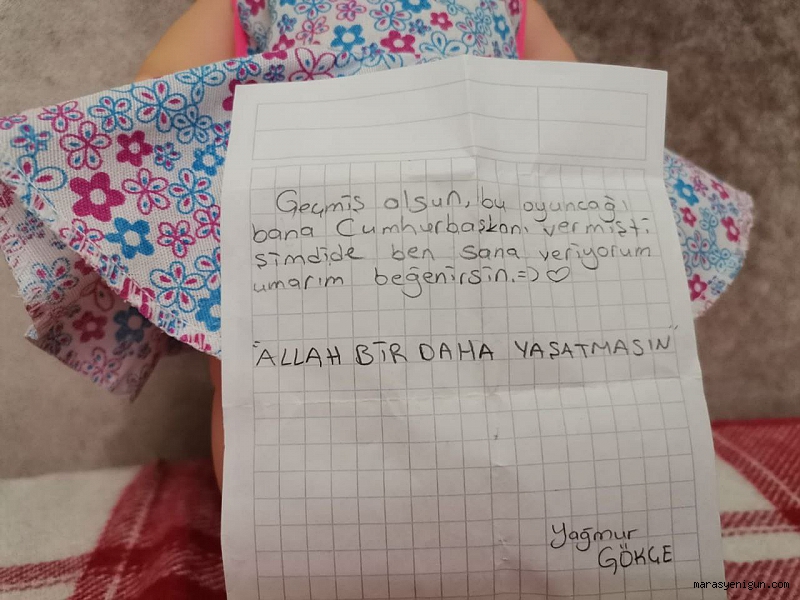 Geçmiş olsun, bu oyuncağı
bana Cumhurbaşkanı vermişti
şimdide ben sana veriyorum
umarım beğenirsin.=) ♡
"ALLAH BİR DAHA YAŞATMASIN"
Yağmur
GÖKÇE
marasyenigun.com